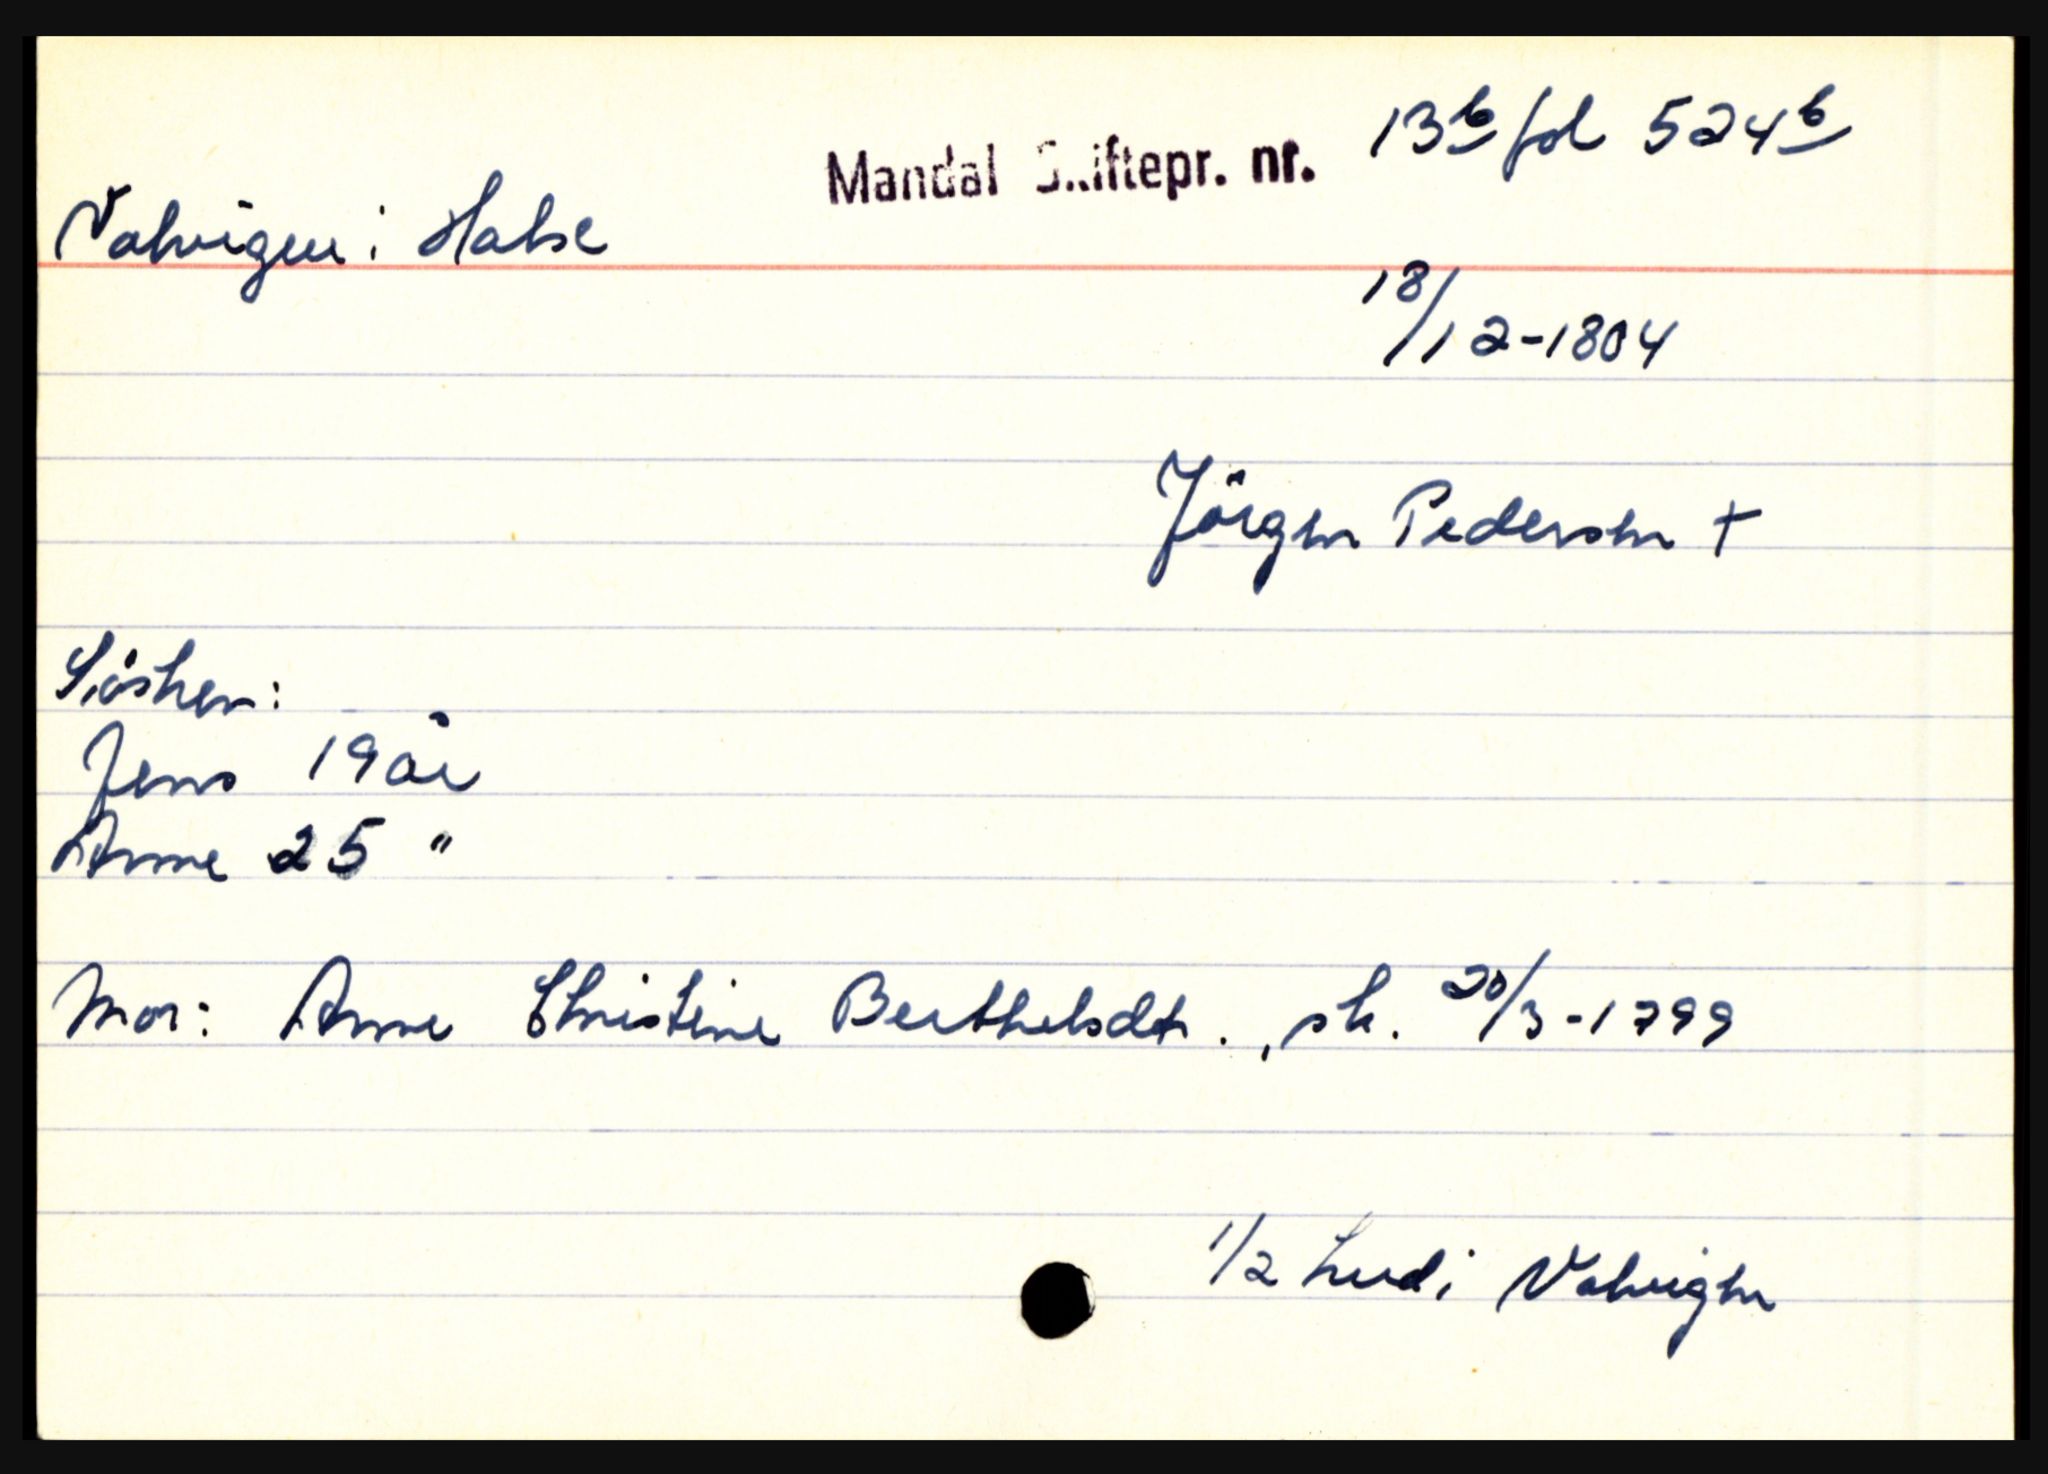 Mandal Skiftepr. nr. 13b fol 524b
Valvigen i Halse
18/12-1804
Jörgen Pedersen +
Søsken:
Jens 19 år
Anne 25 "
Mor: Anne Christine Berthelsdtr., sk. 20/3-1799
1/2 hud i Valvigen